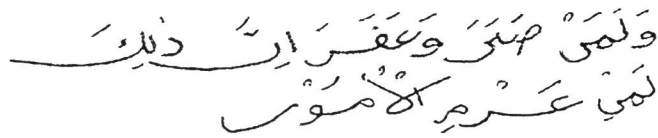 وَلَمَنْ صَبَرَ وَغَفَرَ اِنَّ ذٰلِكَ
لَمِنْ عَزْمِ الْأُمُوْرِ